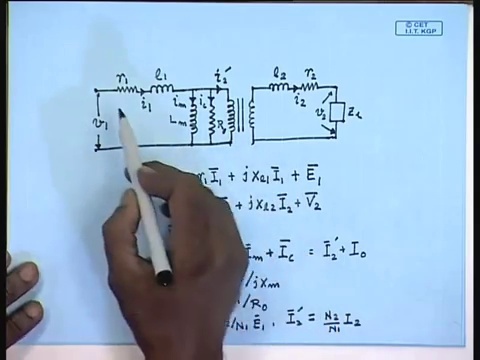 © CET
I.I.T. KGP
r₁ l₁ i₂' l₂ r₂
i₁ iₘ i_c i₂
v₁ Lₘ v₂ Z_L
I̅₁ + jx_l₁ I̅₁ + E̅₁
+ jx_l₂ I̅₂ + V̅₂
I̅ₘ + I̅_c = I̅₂' + I₀
/jxₘ
/R₀
/N₁ E̅₁, I̅₂' = N₂/N₁ I₂